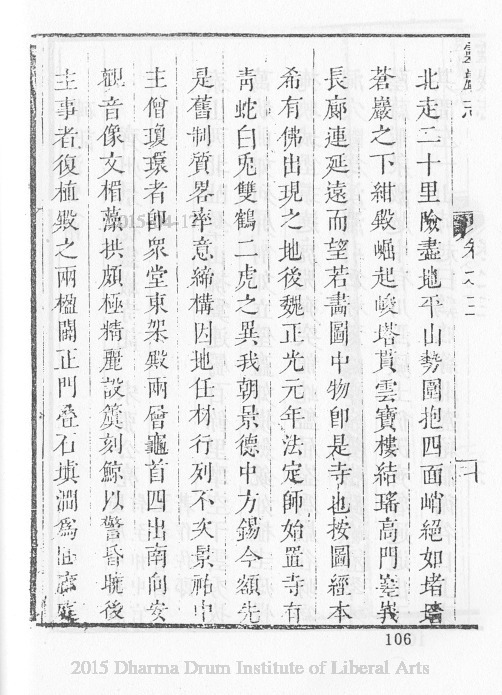 靈巖志
卷之三
北走二十里險盡地平山勢圍抱四面峭絕如堵墻
蒼巖之下紺殿崛起峻塔貫雲寶樓結瑤高門
長廊連延遠而望若畵圖中物卽是寺也按圖經本
希有佛出現之地後魏正光元年法定師始置寺有
靑蛇白兎雙鶴二虎之異我朝景德中方錫今額先
是舊制質畧率意締構因地任材行列不次景祐中
主僧瓊環者卽衆堂東架殿兩層龜首四出南向安
觀音像文楣藻拱頗極精麗設簨刻鯨以警昏曉後
主事者復植殿之兩楹闢正門叠石塡澗爲
106
2015 Dharma Drum Institute of Liberal Arts